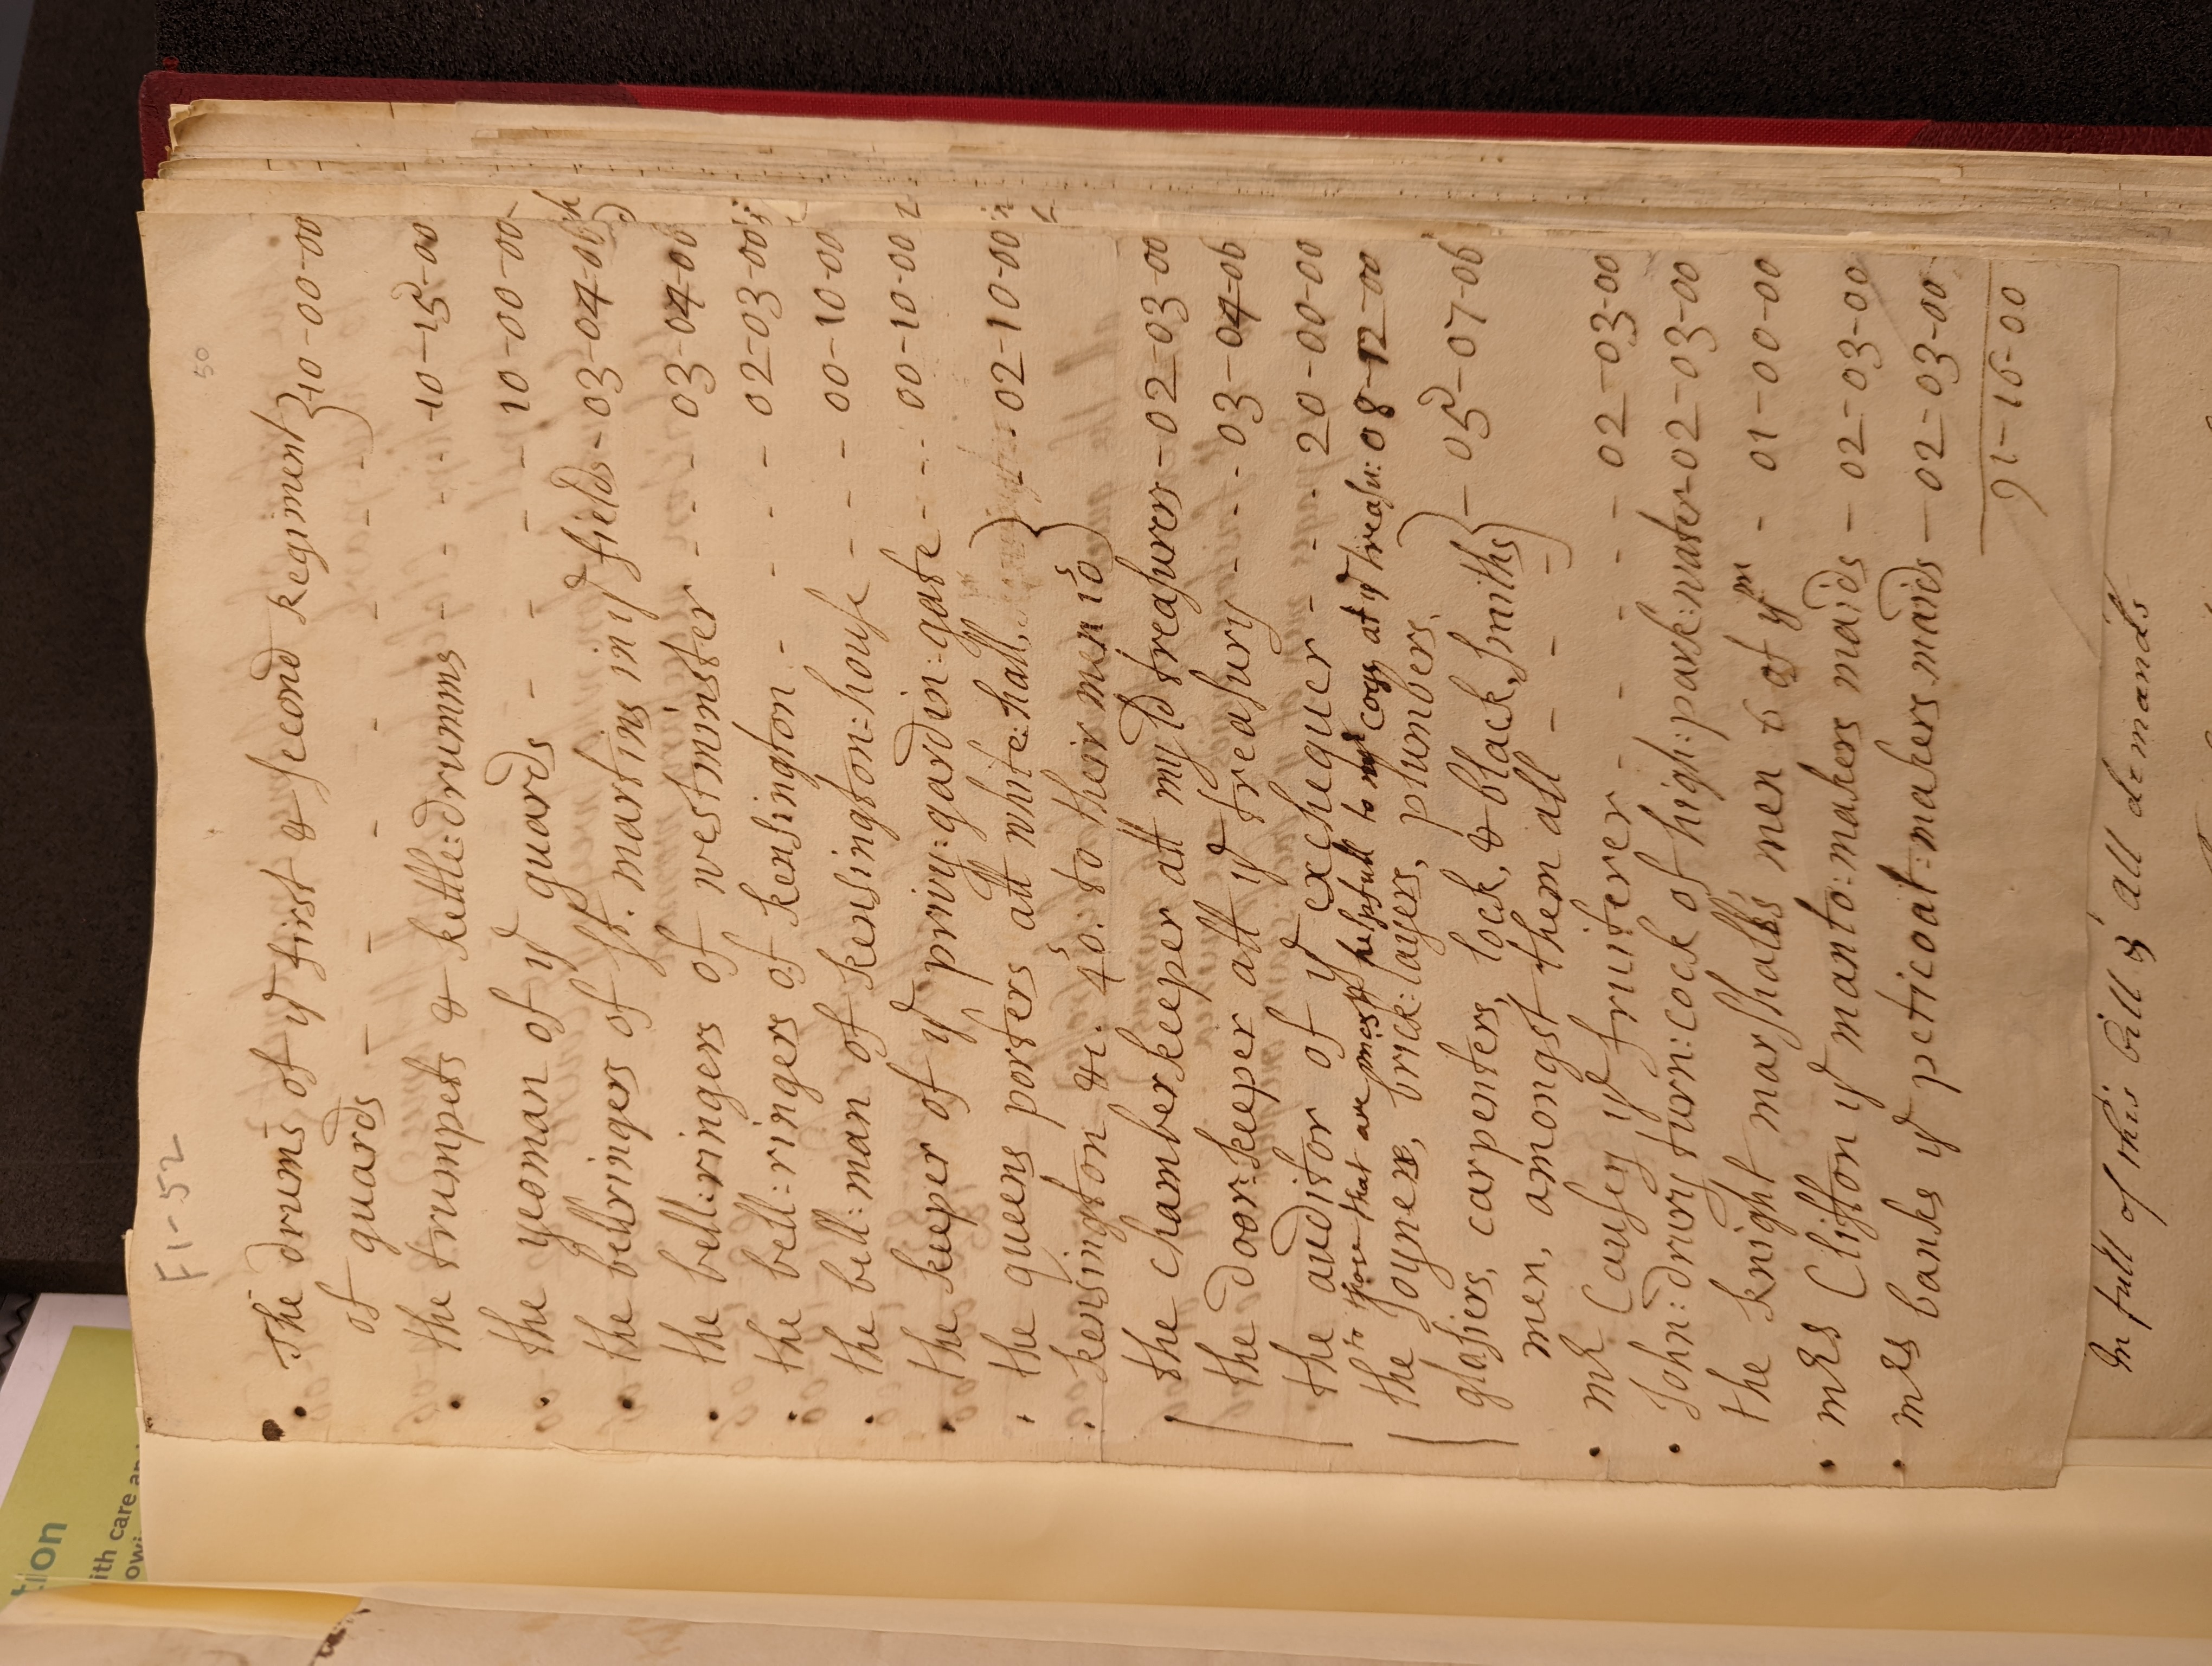 F1-52
50
The drums of ye first & second Regiment} 10-00-00
of guards - - - - - - -
the trumpets & kettle:drumms - - - 10-15-00
the yeoman of ye guards - - - 10-00-00
the bellringers of St. martins in ye fields - 03-04-06
the bell:ringers of westminster - - - 03-04-06
the bell:ringers of kensington - - - - 02-03-00
the bell:man of kensington:house - - - 00-10-00
the keeper of ye privy:gardin:gate - - - 00-10-00
the queens porters att white:hall } - - 02-10-00
kensington &c. 40s. to their men 10s }
the chamberkeeper att my Ld treasurers - 02-03-00
the door:keeper att ye treasury - - - 03-04-06
the auditor of ye exchequer - - - 20-00-00
to those that are most helpfull to my Cogs at ye treasu: 08-12-00
the Joyners, brick:layers, plumbers, } - 05-07-06
glasiers, carpenters, lock, & black, smiths }
men, amongst them all - - -
mr Causey ye fruiterer - - - - - 02-03-00
John:drury turn:cock of high:park:water - 02-03-00
the knight marshalls men 6 of ym - 01-00-00
mrs Clifton ye manto:makers maids - 02-03-00
mrs banks ye peticoat:makers maids - 02-03-00
91-16-00
In full of this bill & all demands
tion
ith care an
owi